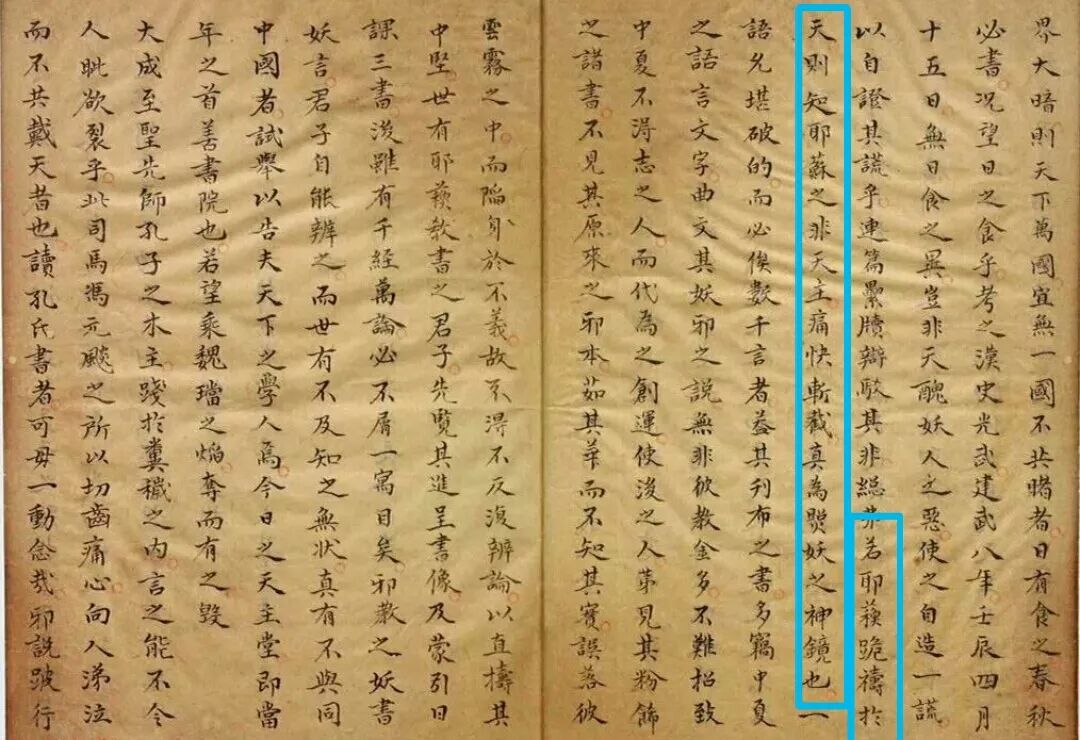 界大暗則天下萬國宜無一國不共睹者日有食之春秋
必書况望日之食乎考之漢史光武建武八年壬辰四月
十五日無日食之異豈非天醜妖人之惡使之自造一謊
以自證其謊乎連篇累牘辯駁其非總非若耶蘓跪禱於
天則知耶蘇之非天主痛快斬截真為照妖之神鏡也一
語允堪破的而必俟數千言者益其刊布之書多竊中夏
之語言文字曲文其妖邪之說無非彼教金多不難招致
中夏不淂志之人而代為之創運使後之人苐見其粉飾
之諸書不見其原來之邪本茹其華而不知其實誤落彼
雲霧之中而陷身於不義故不淂不反復辨論以直擣其
中堅世有耶蘓教書之君子先覽其進呈書像及蒙引日
課三書後雖有千經萬論必不屑一寓目矣邪教之妖書
妖言君子自能辨之而世有不及知之無狀真有不與同
中國者試舉以告夫天下之學人焉今日之天主堂即當
年之首善書院也若望乘魏璫之焰奪而有之毀
大成至聖先師孔子之木主踐於糞穢之内言之能不令
人眦欲裂乎此司馬馮元飈之所以切齒痛心向人涕泣
而不共戴天者也讀孔氏書者可毋一動念哉邪說詖行